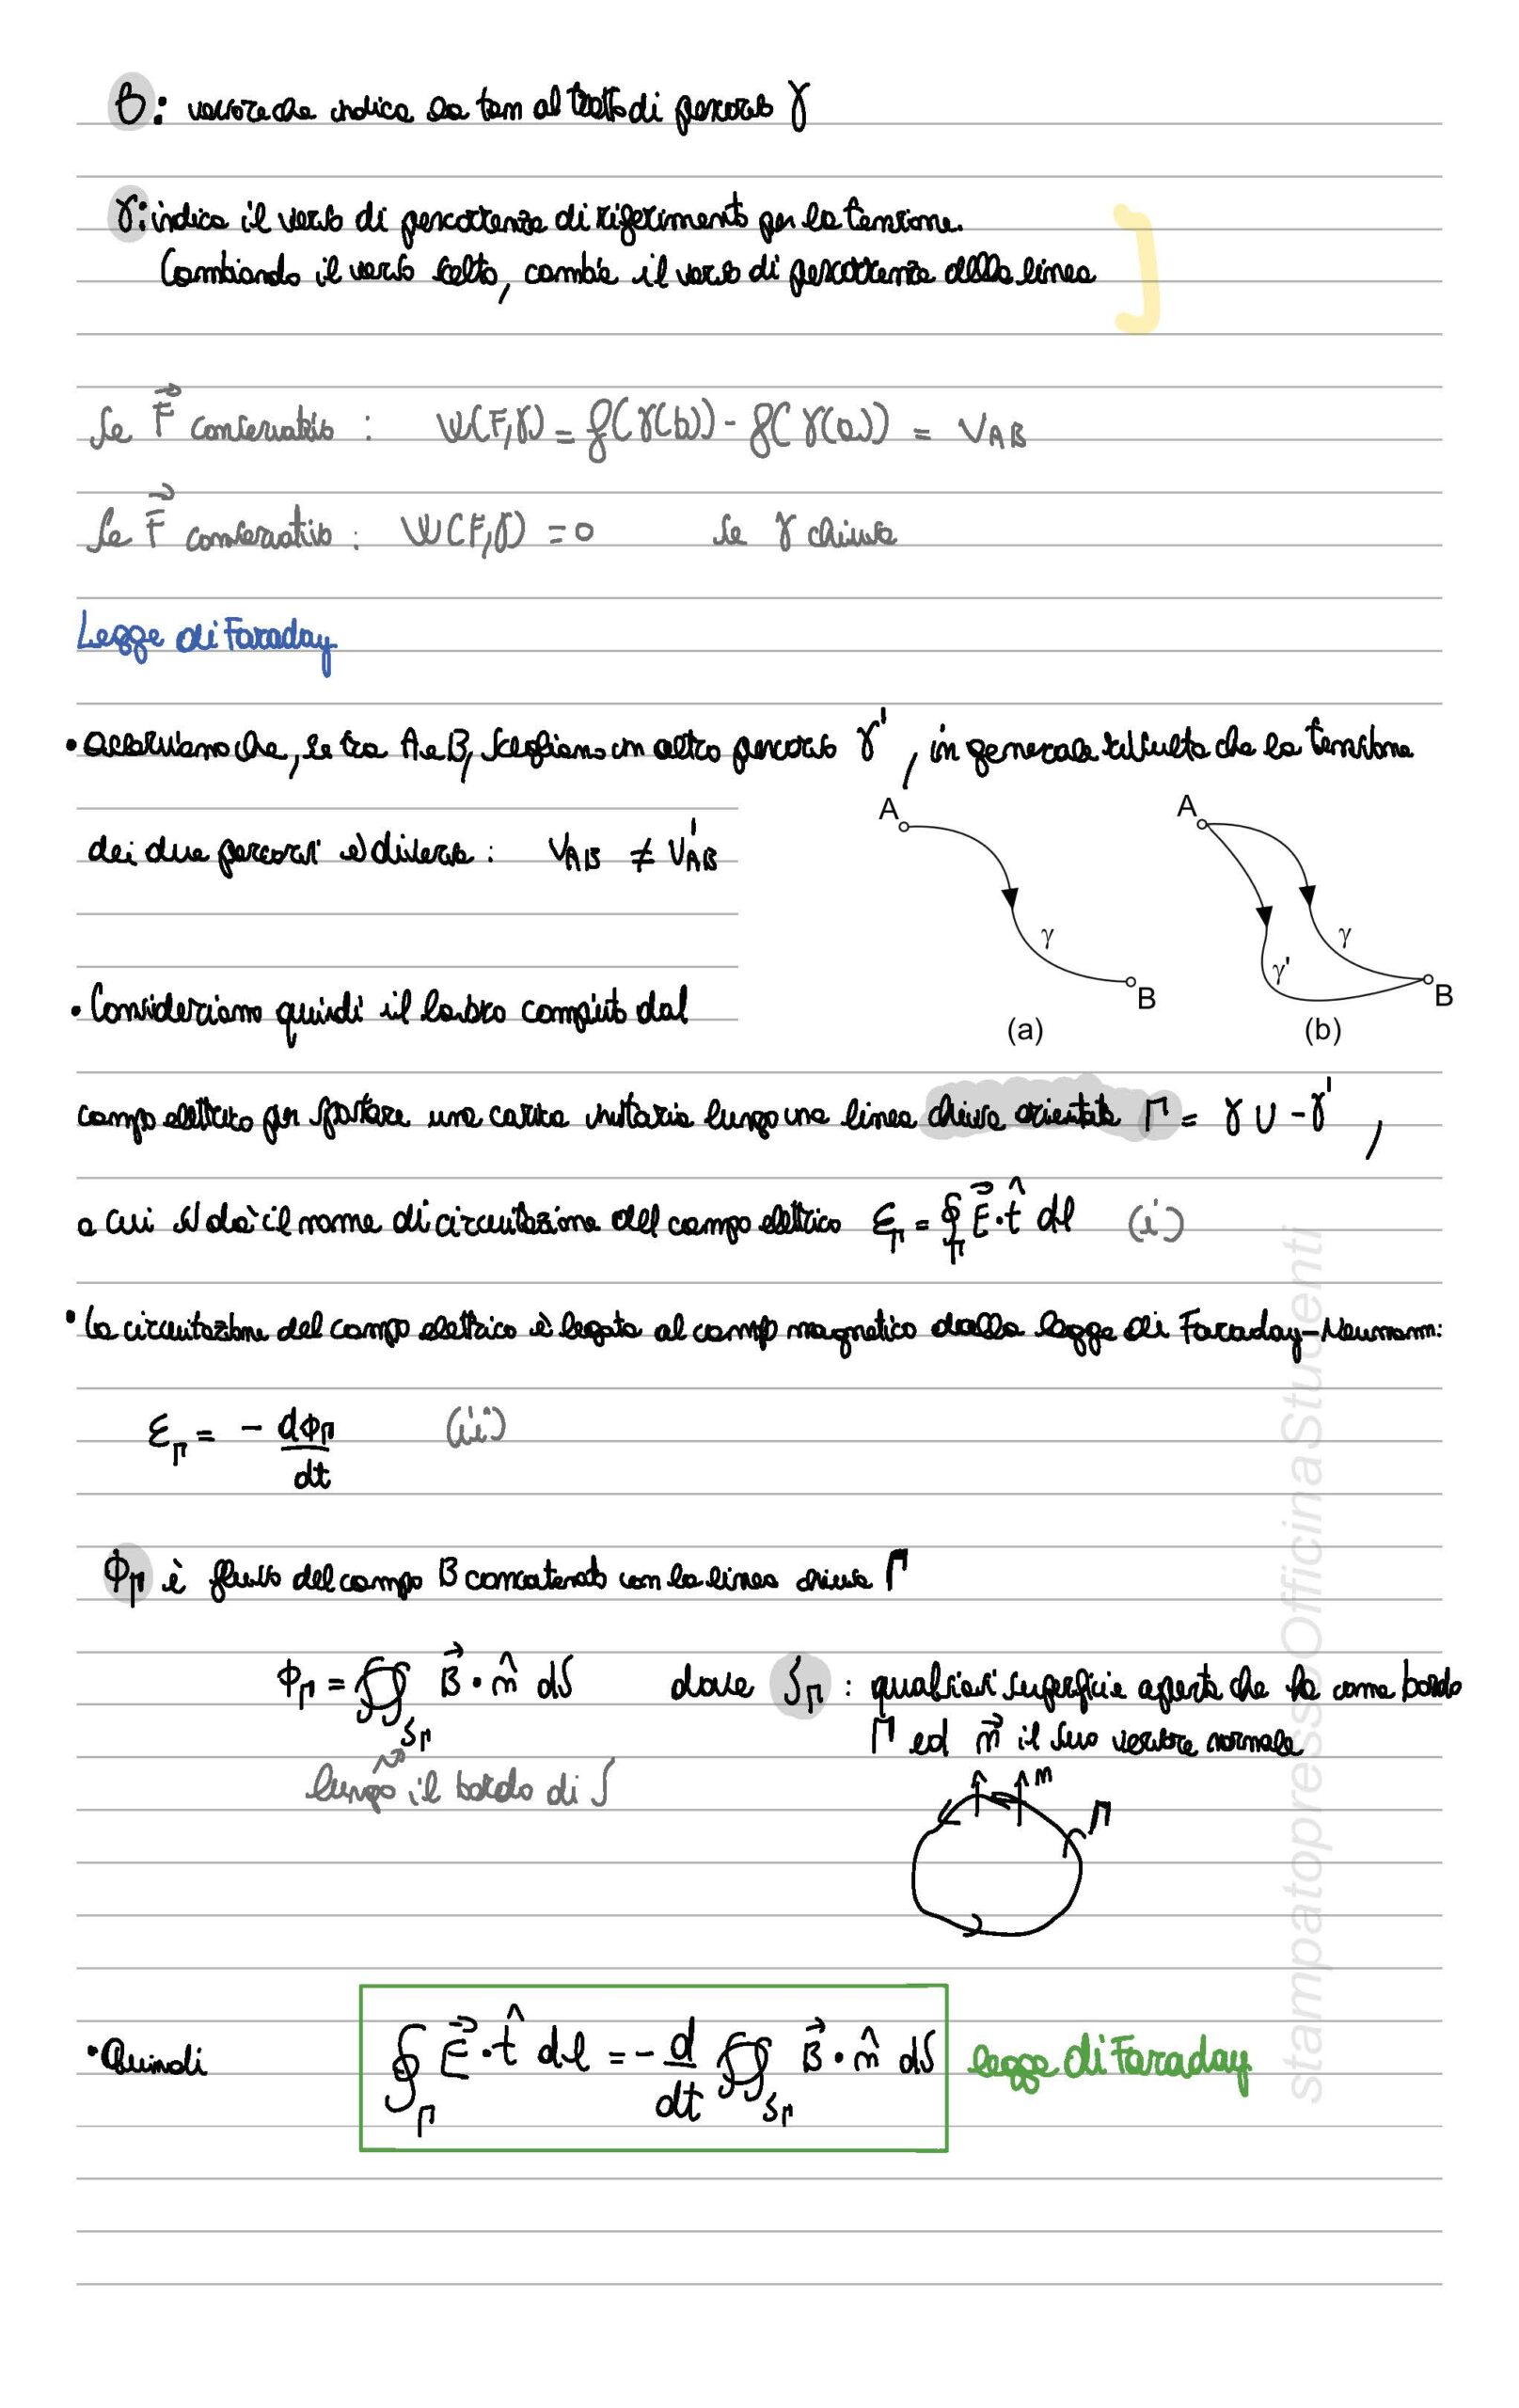 t̂: versore che indica la tan al tratto di percorso γ
γ: indica il verso di percorrenza di riferimento per la tensione.
Cambiando il verso scelto, cambia il verso di percorrenza della linea
Se F⃗ conservativo : W(F,γ) = f(γ(b)) - f(γ(a)) = VAB
Se F⃗ conservativo : W(F,γ) = 0 se γ chiusa
Legge di Faraday
• Osserviamo che, se tra A e B, scegliamo un altro percorso γ', in generale risulta che la tensione
dei due percorsi è diversa : VAB ≠ V'AB
A
γ
B
(a)
A
γ
γ'
B
(b)
• Consideriamo quindi il lavoro compiuto dal
campo elettrico per spostare una carica unitaria lungo una linea chiusa orientata Γ = γ ∪ -γ' ,
a cui si dà il nome di circuitazione del campo elettrico ℰΓ = ∮Γ E⃗·t̂ dl (i)
• La circuitazione del campo elettrico è legata al campo magnetico dalla legge di Faraday-Neumann:
ℰΓ = - dΦΓ/dt (ii)
ΦΓ è flusso del campo B concatenato con la linea chiusa Γ
ΦΓ = ∯SΓ B⃗·n̂ dS dove SΓ : qualsiasi superficie aperta che ha come bordo
Γ ed n⃗ il suo versore normale
lungo il bordo di S
n
Γ
• Quindi ∮Γ E⃗·t̂ dl = - d/dt ∯SΓ B⃗·n̂ dS legge di Faraday
stampatopressoOfficinaStudenti